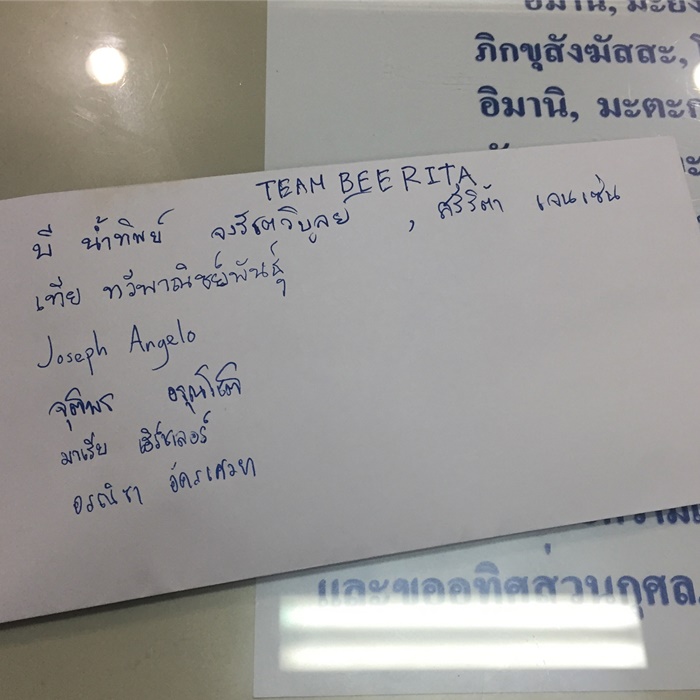 ภิกขุสังฆัสสะ,
อิมานิ, มะตะ
TEAM BEERITA
บี น้ำทิพย์ จงรัชตวิบูลย์ , ศรีริต้า เจนเซ่น
เทีย ทวีพาณิชย์พันธุ์
Joseph Angelo
จุติพร อรุณโชติ
มาเรีย เฮิร์ทเลอร์
อรณิชา
และขออุทิศส่วนกุศล